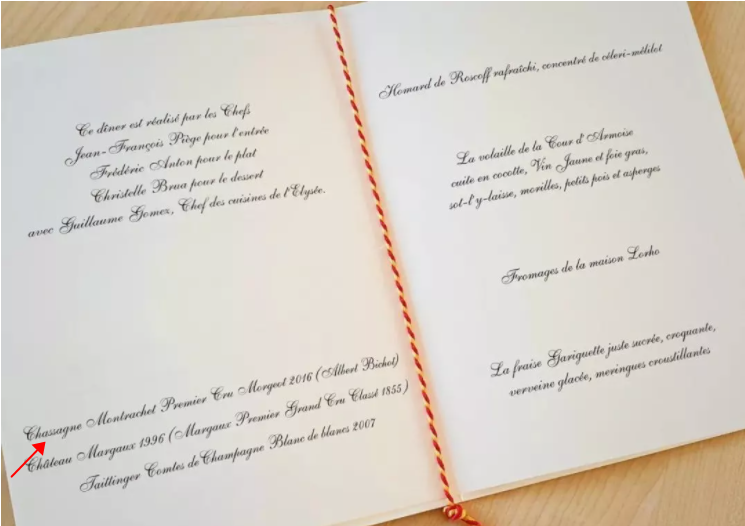 Ce dîner est réalisé par les Chefs
Jean-François Piège pour l'entrée
Frédéric Anton pour le plat
Christelle Brua pour le dessert
avec Guillaume Gomez, Chef des cuisines de l'Elysée.
Chassagne Montrachet Premier Cru Morgeot 2016 (Albert Bichot)
Château Margaux 1996 (Margaux Premier Grand Cru Classé 1855)
Taittinger Comtes de Champagne Blanc de blancs 2007
Homard de Roscoff rafraîchi, concentré de céleri-mélilot
La volaille de la Cour d'Armoise
cuite en cocotte, Vin Jaune et foie gras,
sot-l'y-laisse, morilles, petits pois et asperges
Fromages de la maison Lorho
La fraise Gariguette juste sucrée, croquante,
verveine glacée, meringues croustillantes